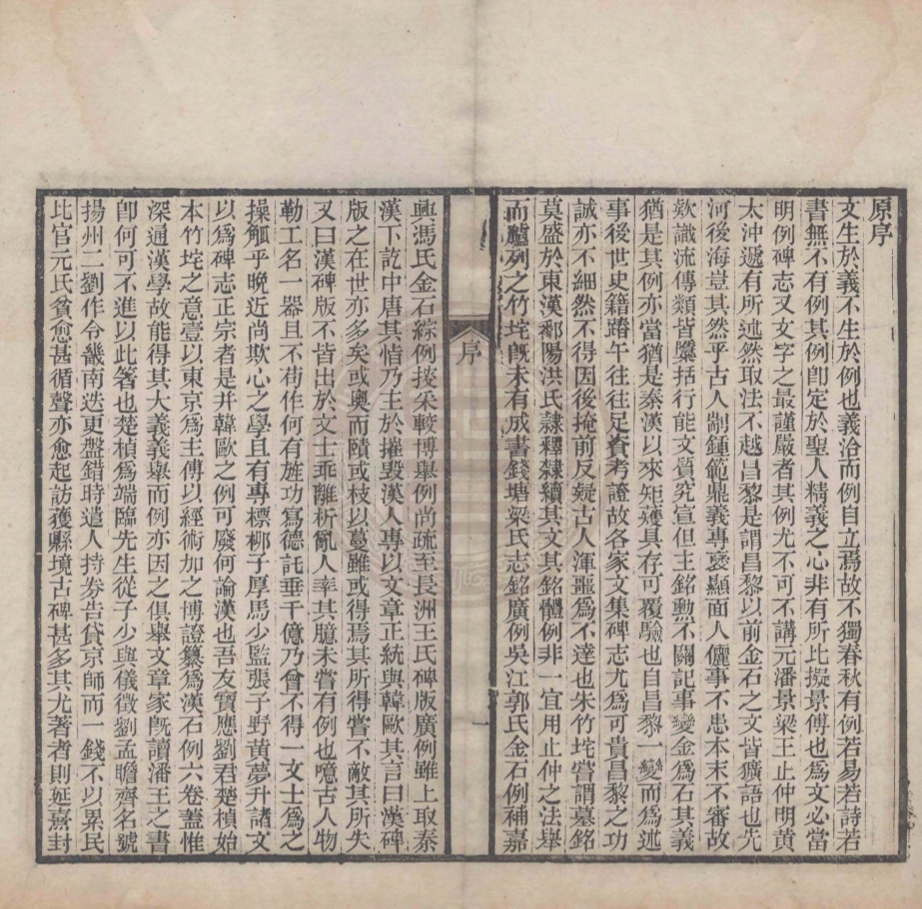 原序
文生於義不生於例也義洽而例自立焉故不獨春秋有例若易若詩若
書無不有例其例卽定於聖人精義之心非有所比擬景傅也爲文必當
明例碑志又文字之最謹嚴者其例尤不可不講元潘景梁王止仲明黃
太沖遞有所述然取法不越昌黎是謂昌黎以前金石之文皆獷語也先
河後海豈其然乎古人剬鍾範鼎義專褒顯面人儷事不患本末不審故
欵識流傳類皆檃括行能文質究宣但主銘勳不關記事變金爲石其義
猶是其例亦當猶是秦漢以來矩矱具存可覆驗也自昌黎一變而爲述
事後世史籍蹖午往往足資考證故各家文集碑志尤爲可貴昌黎之功
誠亦不細然不得因後掩前反疑古人渾噩爲不達也朱竹垞嘗謂墓銘
莫盛於東漢鄱陽洪氏隸釋隸續其文其銘體例非一宜用止仲之法舉
而臚列之竹垞旣未有成書錢塘梁氏志銘廣例吳江郭氏金石例補嘉
序
一
興馮氏金石綜例掞采較博舉例尚疏至長洲王氏碑版廣例雖上取秦
漢下訖中唐其恉乃主於摧毀漢人專以文章正統與韓歐其言曰漢碑
版之在世亦多矣或奧而賾或枝以蔓雖或得焉其所得嘗不敵其所失
又曰漢碑版不皆出於文士乖離析亂人率其臆未嘗有例也噫古人物
勒工名一器且不苟作何有旌功寫德託垂千億乃曾不得一文士爲之
操觚乎晚近尚欺心之學且有專標柳子厚馬少監張子野黃夢升諸文
以爲碑志正宗者是并韓歐之例可廢何論漢也吾友寶應劉君楚楨始
本竹垞之意壹以東京爲主傅以經術加之博證纂爲漢石例六卷蓋惟
深通漢學故能得其大義義舉而例亦因之俱舉文章家旣讀潘王之書
卽何可不進以此箸也楚楨爲端臨先生從子少與儀徵劉孟瞻齊名號
揚州二劉作令畿南迭更盤錯時遣人持券告貸京師而一錢不以累民
比官元氏貧愈甚循聲亦愈起訪獲縣境古碑甚多其尤著者則延熹封